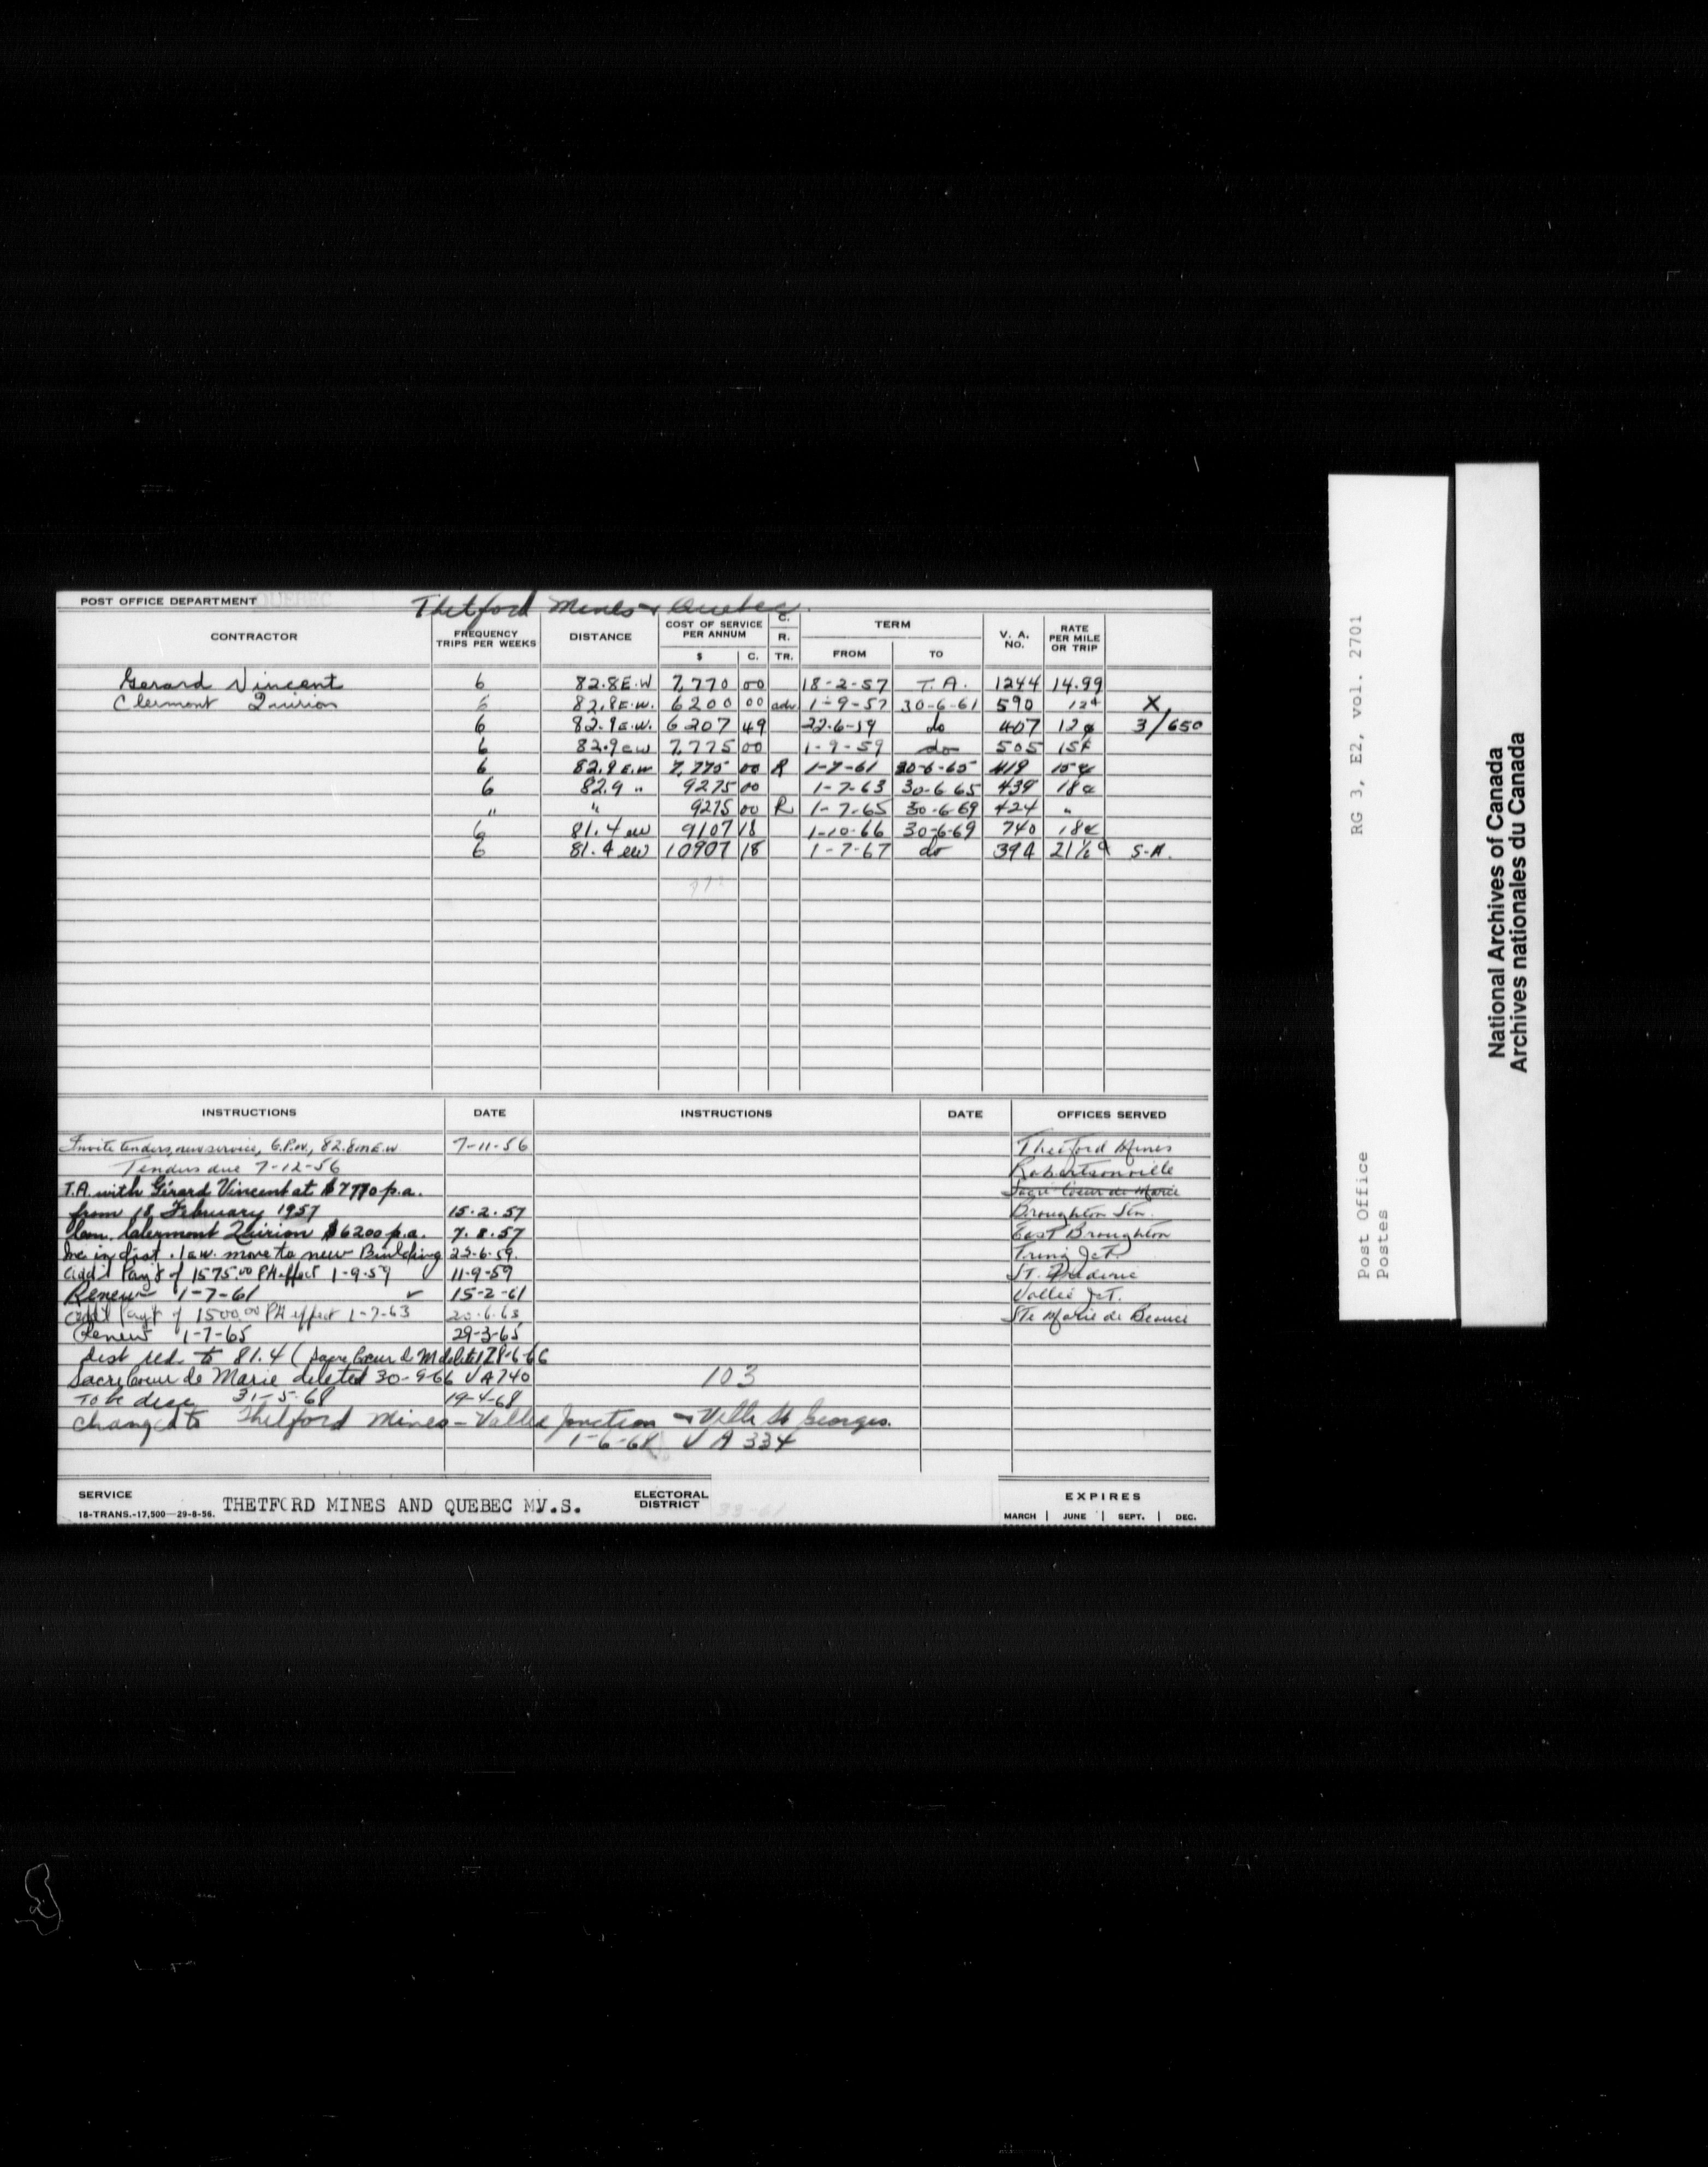 POST OFFICE DEPARTMENT Thetford Mines & Quebec.
CONTRACTOR FREQUENCY TRIPS PER WEEKS DISTANCE COST OF SERVICE PER ANNUM $ C. C. R. TR. TERM FROM TO V. A. NO. RATE PER MILE OR TRIP
Gerard Vincent 6 82.8 E.W 7,770 00 18-2-57 T.A. 1244 14.99
Clermont Quirion 6 82.8 E.W. 6200 00 adv. 1-9-57 30-6-61 590 12¢ X
6 82.9 E.W. 6207 49 22-6-59 do 407 12¢ 3/650
6 82.9 EW 7,775 00 1-9-59 do 505 15¢
6 82.9 E.W 7,775 00 R 1-7-61 30-6-65 419 15¢
6 82.9 " 9275 00 1-7-63 30-6-65 439 18¢
" " 9275 00 R 1-7-65 30-6-69 424 "
6 81.4 EW 9107 18 1-10-66 30-6-69 740 18¢
6 81.4 EW 10907 18 1-7-67 do 394 21½¢ S-A.
INSTRUCTIONS DATE INSTRUCTIONS DATE OFFICES SERVED
Invite tenders, new service, 6.P.W., 82.8 m E.W 7-11-56 Thetford Mines
Tenders due 7-12-56 Robertsonville
T.A. with Gérard Vincent at $7770 p.a. Sacré Coeur de Marie
from 18 February 1957 15.2.57 Broughton Stn.
Clermont Quirion $6200 p.a. 7.8.57 East Broughton
Inc in dist .1 a.w. move to new Building 22-6-59. Tring Jct.
add'l Pay't of 1575.00 PA effect 1-9-59 √ 11-9-59 St. Frederic
Renew 1-7-61 √ 15-2-61 Vallée Jct.
add'l Pay't of 1500.00 PA effect 1-7-63 20-6-63 Ste Marie de Beauce
Renew 1-7-65 29-3-65
dist red. to 81.4 (Sacre Coeur de M delete) 28-6-66
Sacre Coeur de Marie deleted 30-9-66 VA740 103
To be disc 31-5-68 19-4-68
changed to Thetford Mines - Vallée Jonction & Ville St Georges.
1-6-68 VA 334
SERVICE THETFORD MINES AND QUEBEC M.V.S. ELECTORAL DISTRICT EXPIRES
18-TRANS.-17,500—29-8-56. MARCH | JUNE | SEPT. | DEC.
RG 3, E2, vol. 2701
Post Office
Postes
National Archives of Canada
Archives nationales du Canada